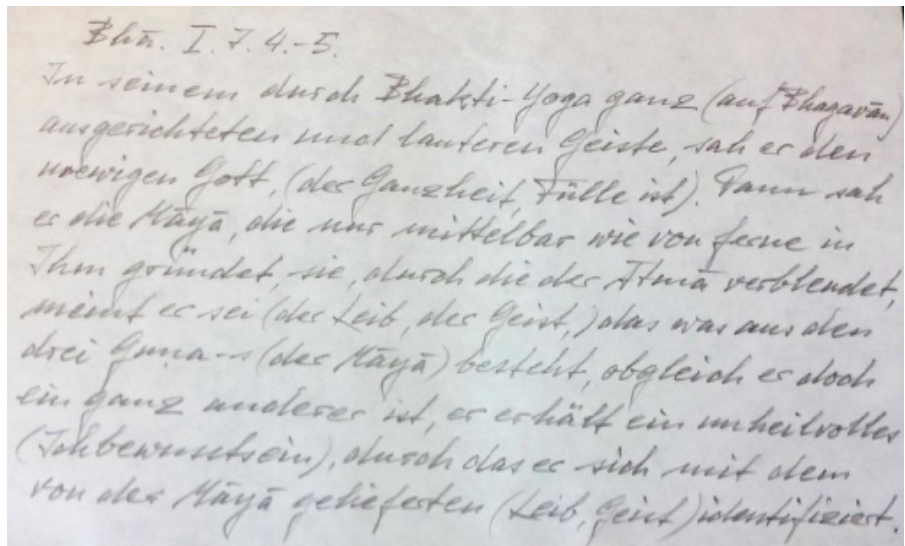 Bhā. I. 7. 4.-5.
In seinem durch Bhakti-Yoga ganz (auf Bhagavān)
ausgerichteten und lauteren Geiste, sah er den
urewigen Gott, (der Ganzheit, Fülle ist). Dann sah
er die Māyā, die nur mittelbar wie von ferne in
Ihm gründet, sie, durch die der Ātmā verblendet,
meint er sei (der Leib, der Geist,) das was aus den
drei Guna-s (der Māyā) besteht, obgleich er doch
ein ganz anderer ist, er erhält ein unheilvolles
(Ichbewusstsein), durch das er sich mit dem
von der Māyā gelieferten (Leib, Geist) identifiziert.